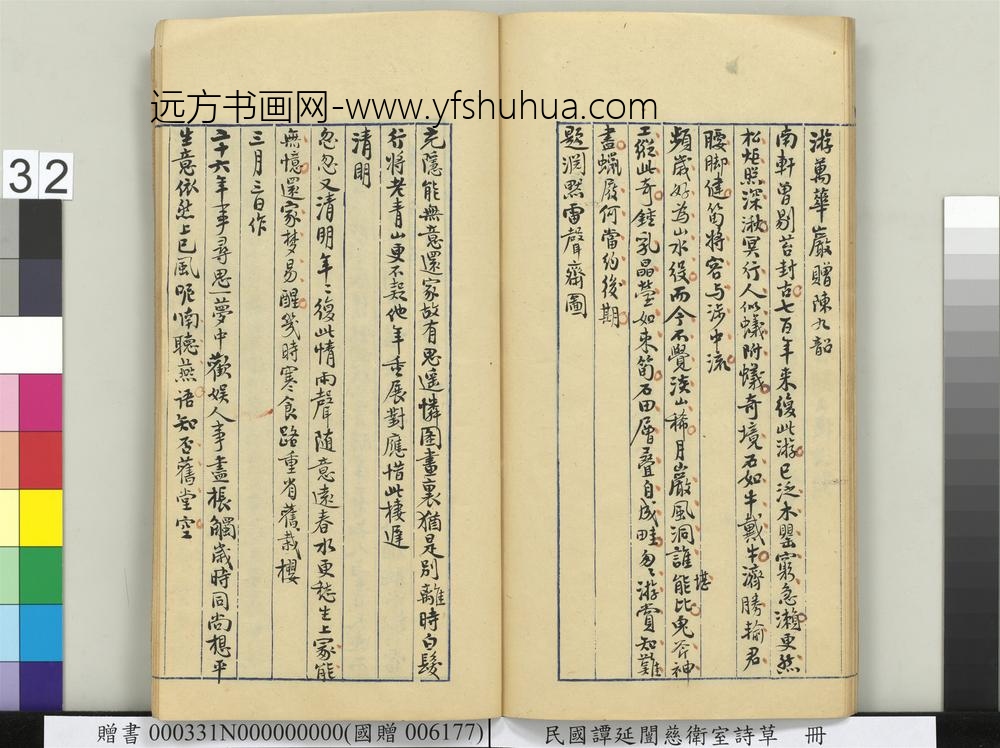 远方书画网-www.yfshuhua.com
游萬華巖贈陳九韶
南軒曾剔苔封古七百年来復此游已泛木罌窮急瀨更然
松炬照深湫冥行人似蟻附蟻奇境石如牛戴牛濟勝輸君
腰脚健筍將容与涉中流
頻歲好為山水役而今不覺淡山稀月巖風洞誰能比鬼斧神
堪
工從此奇鍾乳晶瑩如束筍石田層疊自成畦匆匆游賞知難
盡蠟屐何當約後期
題淵默雷聲齋圖
充隱能無意還家故有思遥憐圖畫裏猶是別離時白髮
行將老青山更不疑他年重展對應惜此棲遲
清明
忽忽又清明年年復此情雨聲随意遠春水更愁生上冢能
無憶還家梦易醒箋時寒食路重肯舊栽櫻
三月三日作
二十六年事尋思一夢中歡娱人事盡棖觸歲時同尚想平
生意依然上巳風呢喃聽燕語知否舊堂空
32
贈書 000331N000000000(國贈 006177)
民國譚延闓慈衛室詩草 冊